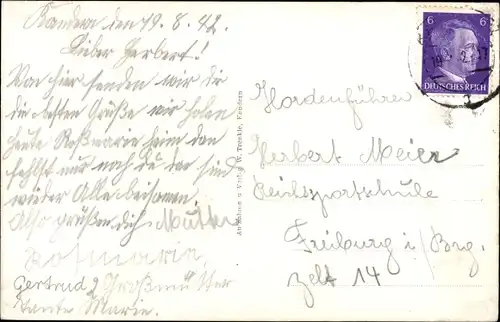 Kandern den 19.8.42.
Lieber Herbert!
Von hier senden wir dir
die besten Grüße wir holen
heute Roßmarie heim dan
fehlst nur noch du dan sind
wieder Alle beisamen.
Also grüßen dich Mutter
Rosmarin,
Gertrud 2 Großmütter
Tante Marie.
W. Trenkle, Kandern
6 6
DEUTSCHES REICH
Hordenführer
Herbert Meier
Reichssportschule
Freiburg i/Brg.
Zelt 14